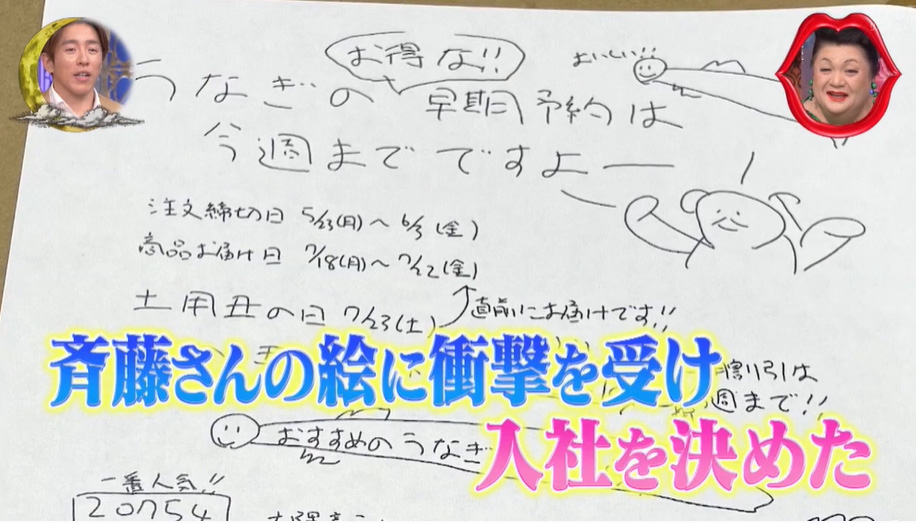 お得な!!
おいしい!!
うなぎの 早期予約は
今週までですよー
注文締切日 5/23(月)〜6/3(金)
商品お届け日 7/18(月)〜7/22(金)
土用丑の日 7/23(土)
直前にお届けです!!
斉藤さんの絵に衝撃を受け
割引は
週まで!!
おすすめのうなぎ
入社を決めた
一番人気!!
20754